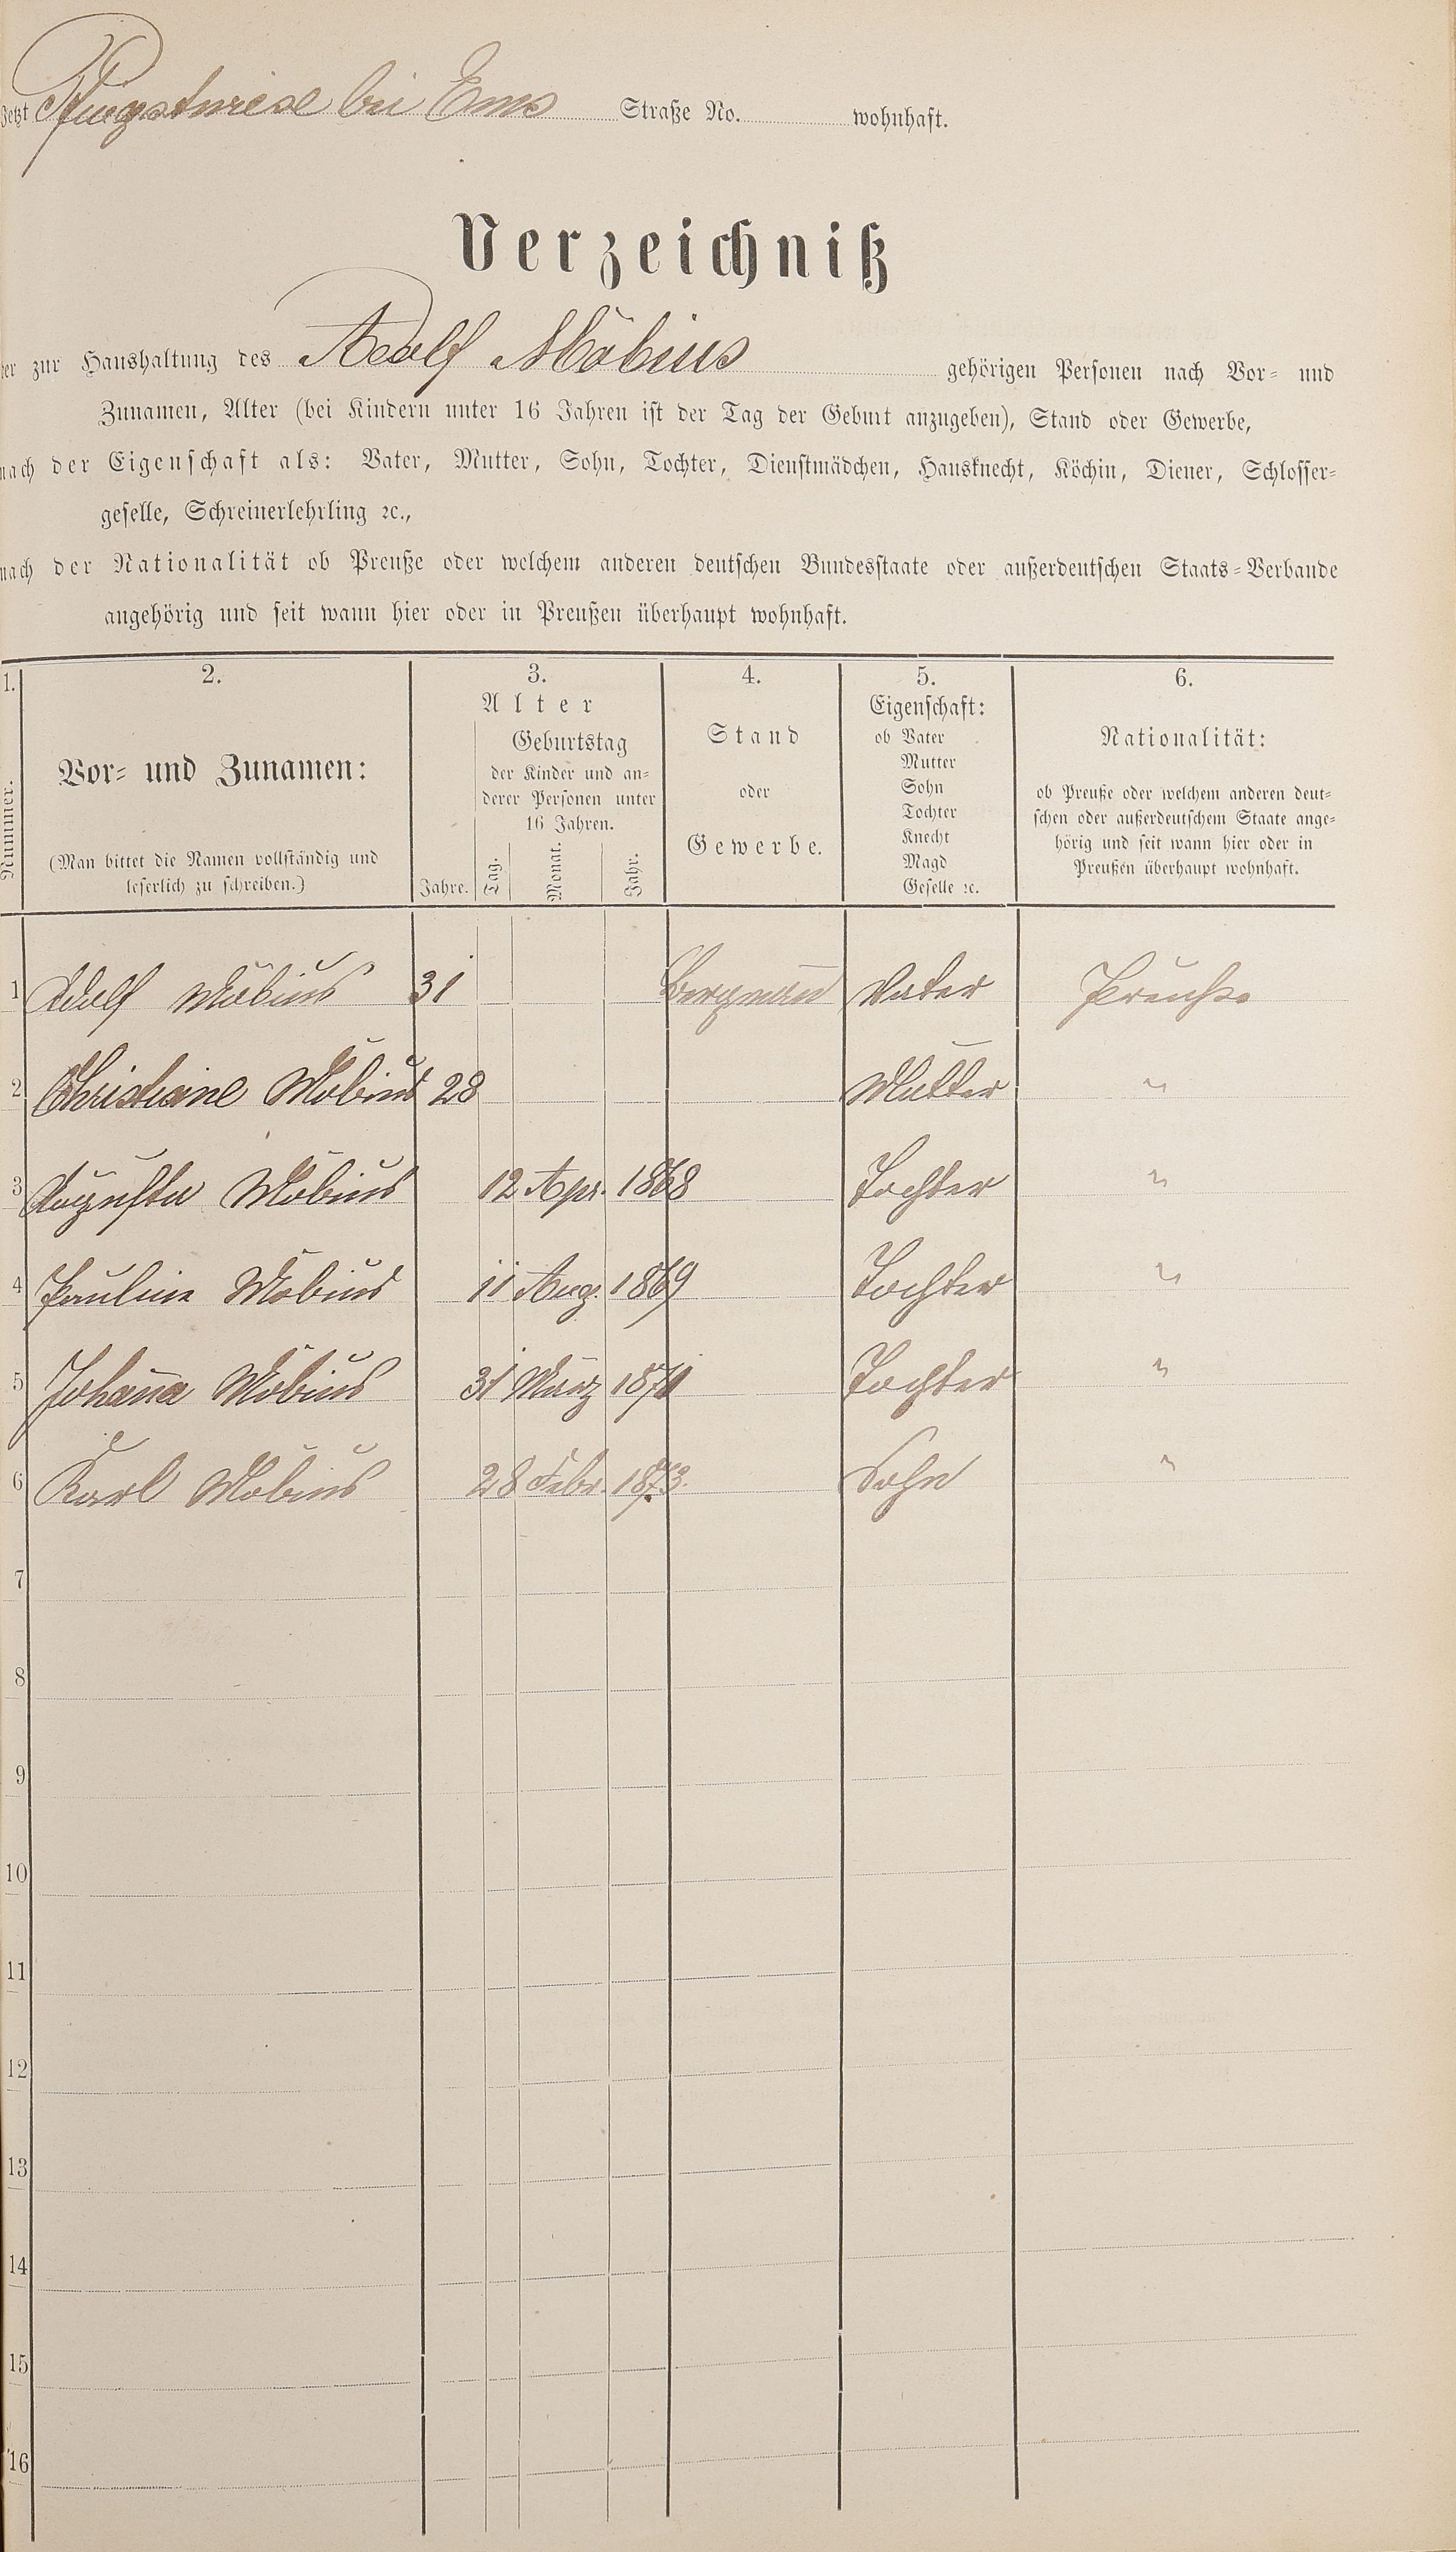 Jetzt Pfingstwiese bei Ems Straße No. wohnhaft.
Verzeichniß
der zur Haushaltung des Adolf Möbius gehörigen Personen nach Vor- und
Zunamen, Alter (bei Kindern unter 16 Jahren ist der Tag der Geburt anzugeben), Stand oder Gewerbe,
nach der Eigenschaft als: Vater, Mutter, Sohn, Tochter, Dienstmädchen, Hausknecht, Köchin, Diener, Schlosser-
geselle, Schreinerlehrling ꝛc.,
nach der Nationalität ob Preuße oder welchem anderen deutschen Bundesstaate oder außerdeutschen Staats-Verbande
angehörig und seit wann hier oder in Preußen überhaupt wohnhaft.
1.
Nummer.
2.
Vor- und Zunamen:
(Man bittet die Namen vollständig und
leserlich zu schreiben.)
3.
Alter
Jahre.
Geburtstag
der Kinder und an-
derer Personen unter
16 Jahren.
Tag. Monat. Jahr.
4.
Stand
oder
Gewerbe.
5.
Eigenschaft:
ob Vater
Mutter
Sohn
Tochter
Knecht
Magd
Geselle ꝛc.
6.
Nationalität:
ob Preuße oder welchem anderen deut-
schen oder außerdeutschem Staate ange-
hörig und seit wann hier oder in
Preußen überhaupt wohnhaft.
1 Adolf Möbius 31 Bergman̄ Vater Preuße
2 Christiane Möbius 28 Mutter "
3 Augusta Möbius 12 Apr. 1868 Tochter "
4 Pauline Möbius 11 Aug. 1869 Tochter "
5 Johan̄a Möbius 31 März 1871 Tochter "
6 Karl Möbius 28 Febr. 1873. Sohn "
7
8
9
10
11
12
13
14
15
16